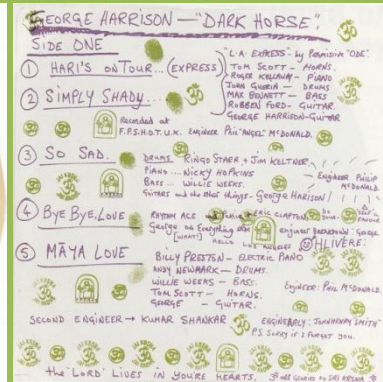 GEORGE HARRISON — "DARK HORSE".
SIDE ONE
① HARI'S ON TOUR... (EXPRESS)
"L.A. EXPRESS" - by Permission "ODE".
TOM SCOTT - HORNS.
ROGER KELLAWAY - PIANO
JOHN GUERIN - DRUMS
MAX BENNETT - BASS
ROBBEN FORD - GUITAR.
GEORGE HARRISON - GUITAR
② SIMPLY SHADY...
Recorded at
F.P.S.H.O.T. U.K. ENGINEER PHIL "ANGEL" McDONALD.
③ SO SAD.
DRUMS RINGO STARR + JIM KELTNER
PIANO... NICKY HOPKINS
BASS - WILLIE WEEKS.
GUITARS and the other things - GEORGE HARISON!
ENGINEER PHILIP
McDONALD.
④ BYE BYE, LOVE
RHYTHM ACE
ERIC CLAPTON
George on Everything else
[WHAT!]
HELLO LOS ANGELES
engineer
⑤ MĀYA LOVE
OHLIVERE:
BILLY PRESTON - ELECTRIC PIANO
ANDY NEWMARK - DRUMS.
WILLIE WEEKS - BASS.
TOM SCOTT - HORNS.
GEORGE - GUITAR.
ENGINEER: PHIL McDONALD.
SECOND ENGINEER → KUMAR SHANKAR
P.S. SORRY if I FORGOT YOU.
the 'LORD' LIVES IN YOU'RE HEARTS.
ॐ all GLORIES to SRI KRSNA ॐ